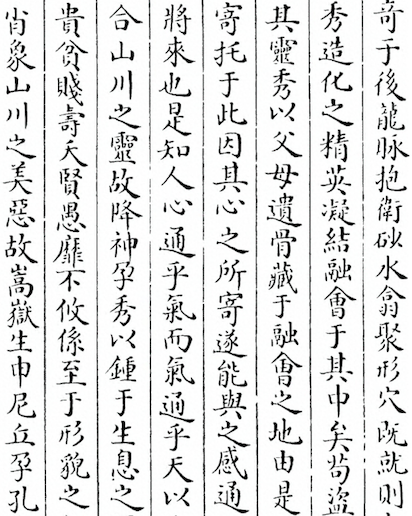 奇于後龍脉抱衛砂水翕聚形穴既就則
秀造化之精英凝結融會于其中矣苟盜
其靈秀以父母遺骨藏于融會之地由是
寄托于此因其心之所寄遂能與之感通
將來也是知人心通乎氣而氣通乎天以
合山川之靈故降神孕秀以鍾于生息之
貴貧賤壽夭賢愚靡不攸係至于形貌之
肖象山川之美惡故嵩嶽生申尼丘孕孔